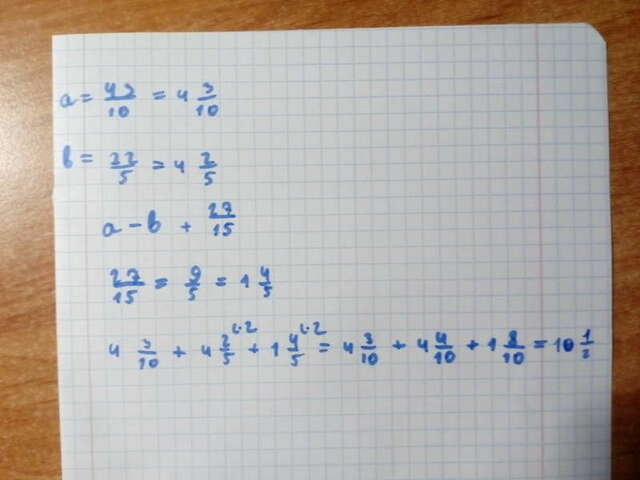 a = 43/10 = 4 3/10
b = 22/5 = 4 2/5
a - b + 27/15
27/15 = 9/5 = 1 4/5
4 3/10 + 4 2/5 (·2 + 1 4/5 (·2 = 4 3/10 + 4 4/10 + 1 8/10 = 10 1/2